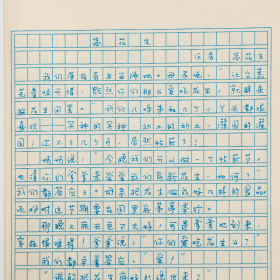 落花生
作者 落花生
我们屋后有半亩隙地。母亲说："让它荒
芜着怪可惜，既然你们那么爱吃花生，就辟来
做花生园罢。"我们几姊弟和几个小丫头都很
喜欢——买种的买种，动土的动土，灌园的灌
园；过不了几个月，居然收获了！
妈妈说："今晚我们可以做一个收获节，
也请你们爹爹来尝尝我们底新花生，如何？"
我们都答应了。母亲把花生做成好几样的食品
，还吩咐这节期要在园里底茅亭举行。
那晚上底天色不大好，可是爹爹也到来，
实在很难得！爹爹说："你们爱吃花生么？"
我们都争着答应："爱！"
"谁能把花生底好处说出来？"